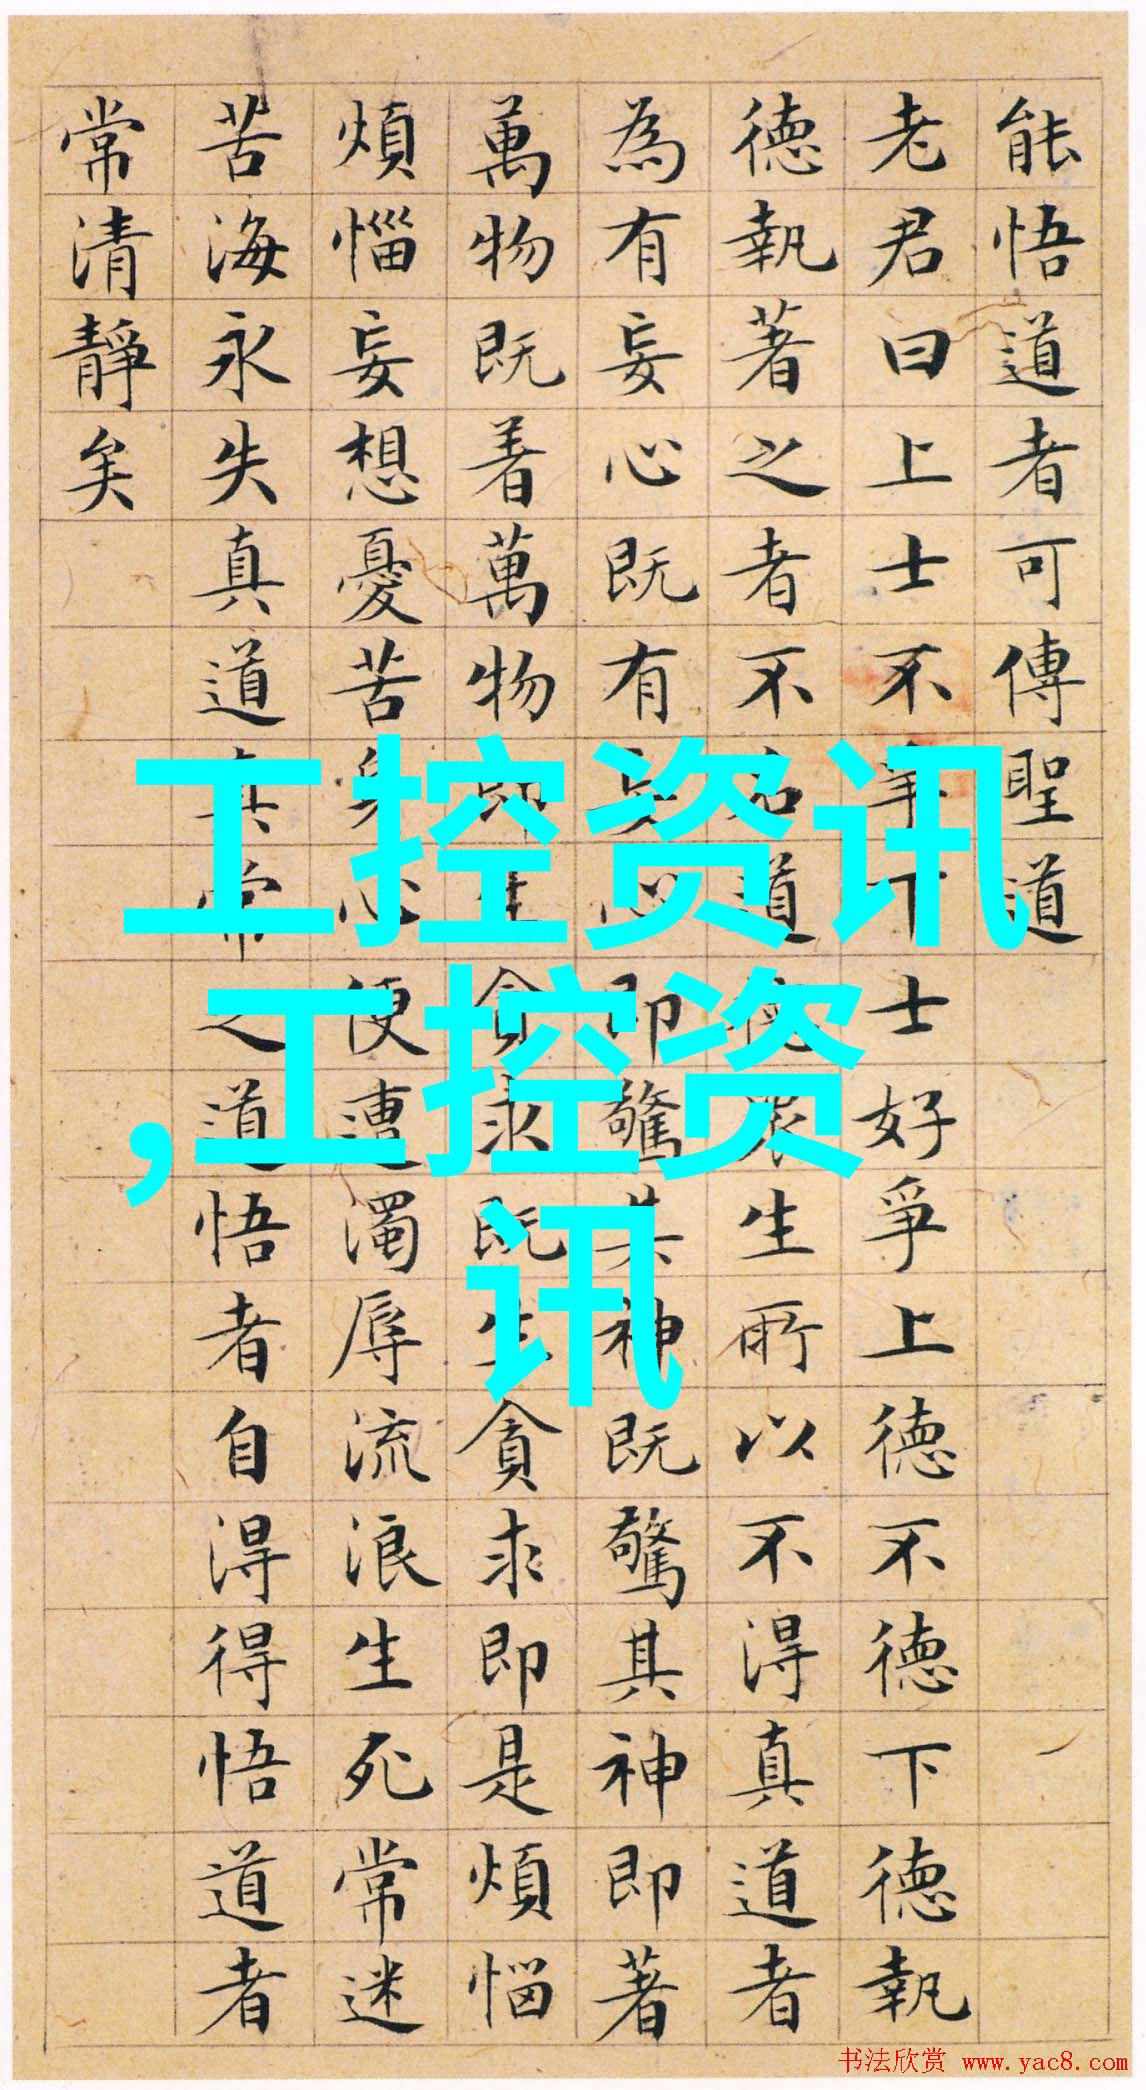 能悟道者可傳聖道
老君曰上士不争下士好爭上德不德下德執
德執著之者不名道德眾生所以不得真道者
為有妄心既有妄心即驚其神既驚其神即著
萬物既着萬物即生貪求既生貪求即是煩惱
煩惱妄想憂苦身心便遭濁辱流浪生死常迷
苦海永失真道真常之道悟者自得得悟道者
常清靜矣
工控资讯
,工控资
讯
书法欣赏 www.yac8.com